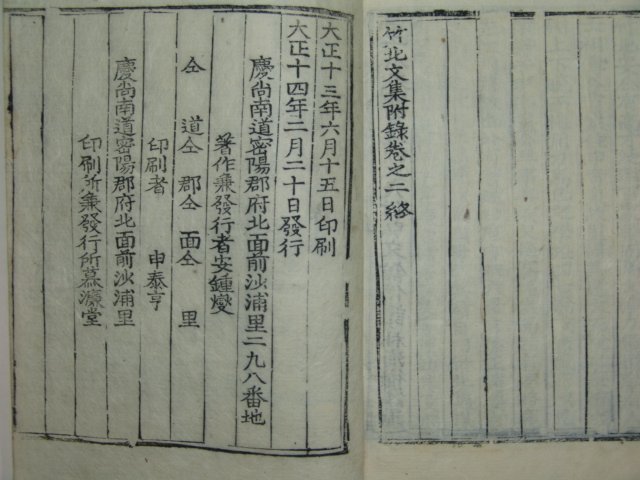 竹北文集附錄卷之二 終
大正十三年六月十五日印刷
大正十四年二月二十日發行
慶尚南道密陽郡府北面前沙浦里二九八番地
著作兼發行者安鍾燮
仝 道仝 郡仝 面仝 里
印刷者 申泰亨
慶尚南道密陽郡府北面前沙浦里
印刷所兼發行所慕濂堂